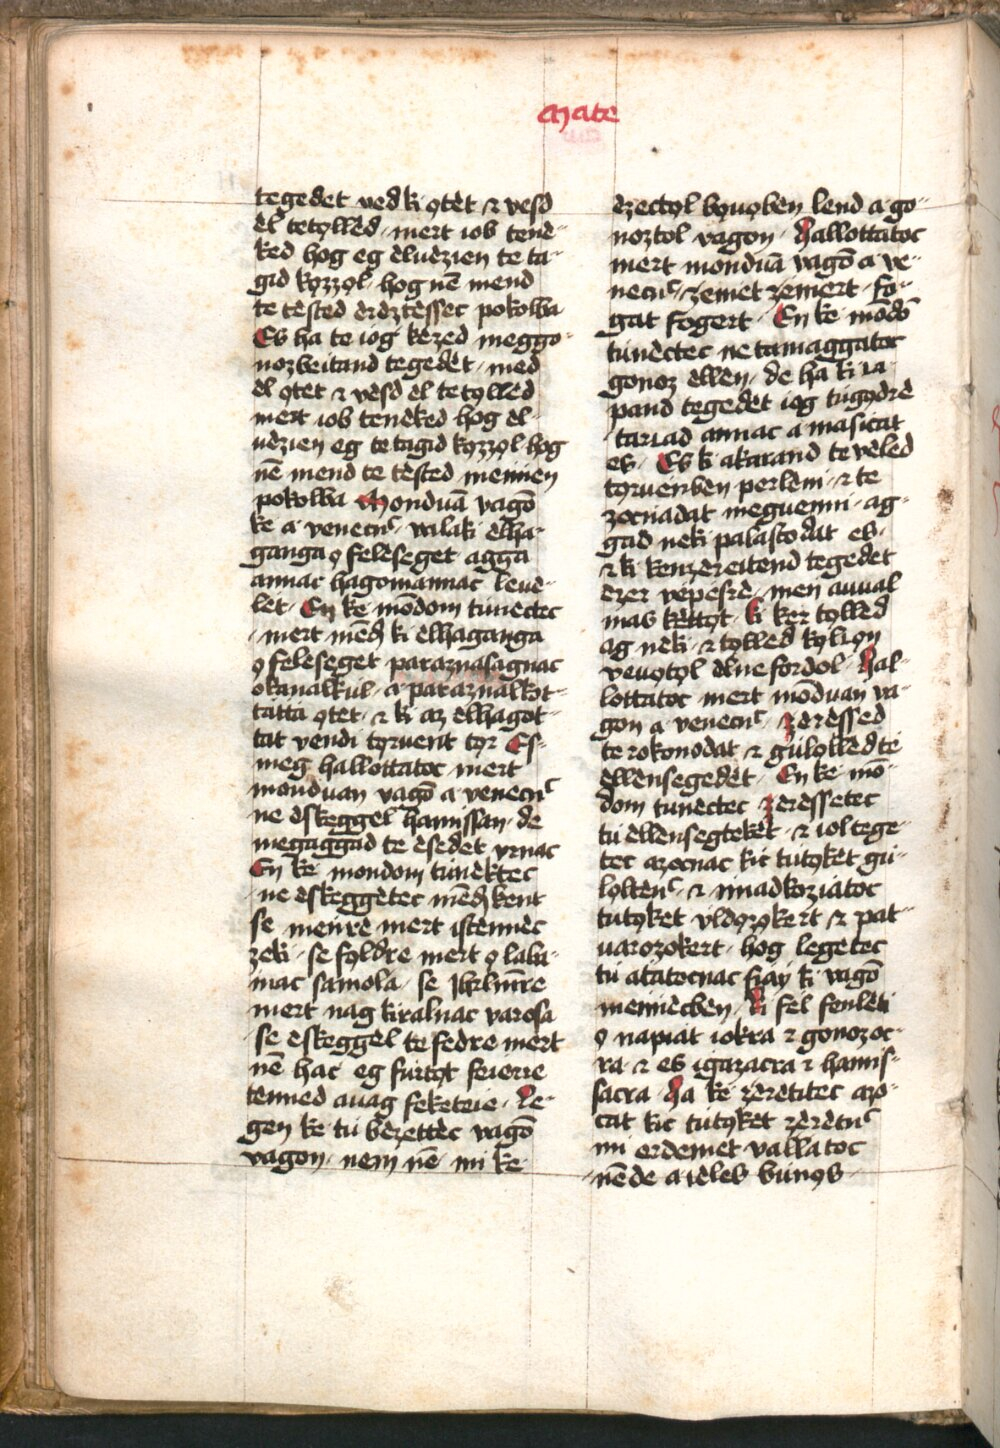 Mate
tegedet ved ki ọtèt ⁊ vesd
èl tetọlled · mert iob tene-
ked hog eg èluèzien te ta-
gid kọzzọl · hog nē mend
te tèsted èrèztèssec pokolba
Es ha te iog kèzed meggo-
nozbeitand tegedèt · męd
èl ọtèt ⁊ vèsd èl tetọlled
mert iob tenèked hog èl-
uèzien eg te tagid kọzzọl · hog
nē mend te tèsted mennien
pokolba Monduā vagō
ke a venecnc̄ · valaki èlha-
ganga ọ felèseget agga
annac hagomannac leue-
lèt · En ke mōdom tùnèctec
mert mēd̄ ki èlhaganga
ọ felèseget paraznasagnac
okanalkùl · a paraznalkot-
tatta ọtèt · ⁊ ki az èlhagot-
tat vendi tọruènt tọr Es-
meg hallottatoc mert
monduan vagō a venecnc̄
ne èskeggèl hamissan · de
megaggad te èsedèt vrnac
En ke mondom tùnèktec
ne èskeggètec mēd̄ kent
se menrè mert istènnèc
zèki · se fọldre mert ọ laba-
inac samola · se Jhrlmre
mert nag kiralnac varosa
se èskeggèl te fedre mert
nē hac eg fùrtọt feierre
tènned auag feketeie · Le-
gen ke tù bèzettèc vagō
vagon · nem nē · mi ke
èzectọl bọuọben lend a go-
noztol vagon · Hallottatoc
mert monduā vagō a ve-
necnc̄ · zèmet zèmert · fo-
gat fogert · En ke mōdō
tùnèctec ne tamaggatoc
gonoz ellen · de ha ki ia-
pand tegedèt iog tùgọdrè
tariad annac a masicat
es · Es ki akarand te vèled
tọruenben perleni · ⁊ te
zocnadat meguenni · ag-
gad neki palastodat es ·
⁊ ki kenzèreitend tegedèt
ezer vepesrè · men auual
mas kèttọt · Ki ker tọlled
ag neki · ⁊ tọlled kọlion
veuọtọl èlne fordol · Hal-
lottatoc mert mōduan va-
gon a venecnc̄ · zèrèssed
te rokonodat ⁊ gùlọlled te
èllensegedèt · En ke mō-
dom tùnèctec · zèrèssetec
tù èllensegtekèt · ⁊ iol tege-
tec azocnac kic tùtọkèt gù-
lọltènc̄ · ⁊ imadkoziatoc
tùtọket vldọzọkèrt ⁊ pat-
uarozokert · hog legètec
tù atatocnac fiay ki vagō
mennècben · ki fel fenlèti
ọ napiat iokra ⁊ gonozoc-
ra · ⁊ es igazacra ⁊ hamis-
sacra · Ha ke zèretitec azo-
cat kic tùtọkèt zèrètnc̄
mi èrdemèt vallatoc
nē de a ièles bùnọs